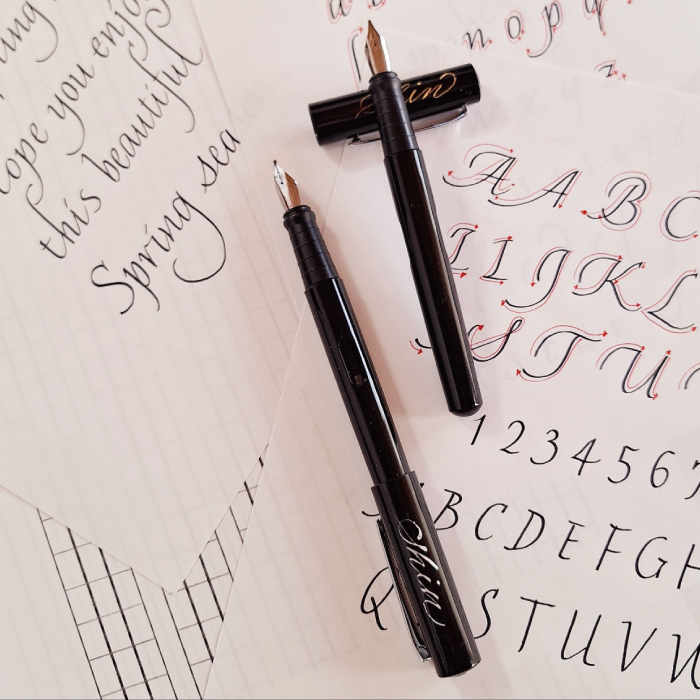 ope you enjo
this beautiful
Spring sea
n o p q
Shin
A A B C
I I J K L
S T U
1 2 3 4 5 6 7
B C D E F G H
Q
S T U V W
Shin